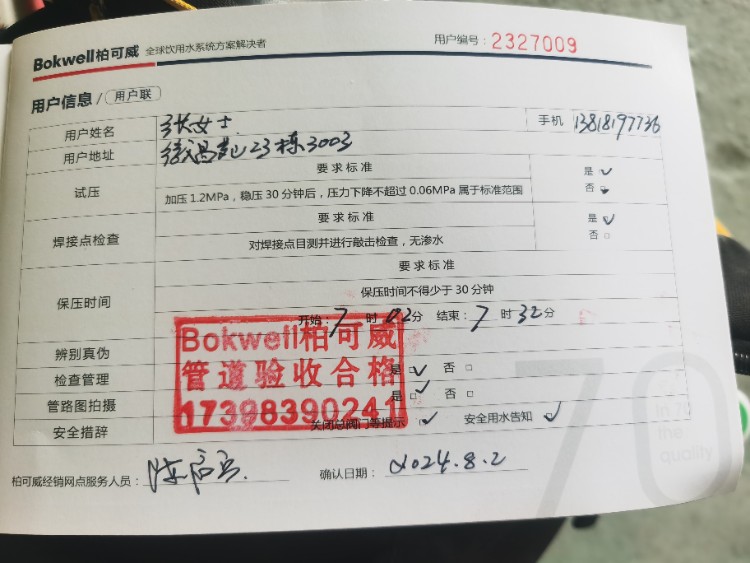 Bokwell柏可威 全球饮用水系统方案解决者 用户编号：2327009
用户信息 / 用户联
用户姓名 张女士 手机 13818197736
用户地址 23栋3003
试压 要求标准 是
加压1.2MPa，稳压30分钟后，压力下降不超过0.06MPa属于标准范围 否
焊接点检查 要求标准 是
对焊接点目测并进行敲击检查，无渗水 否
保压时间 要求标准
保压时间不得少于30分钟
开始：7时02分 结束：7时32分
辨别真伪
检查管理 是 否
管路图拍摄 是 否
安全措辞 关闭总阀门等提示 安全用水告知
Bokwell柏可威
管道验收合格
17398390241
70
the
quality
柏可威经销网点服务人员： 确认日期：2024.8.2